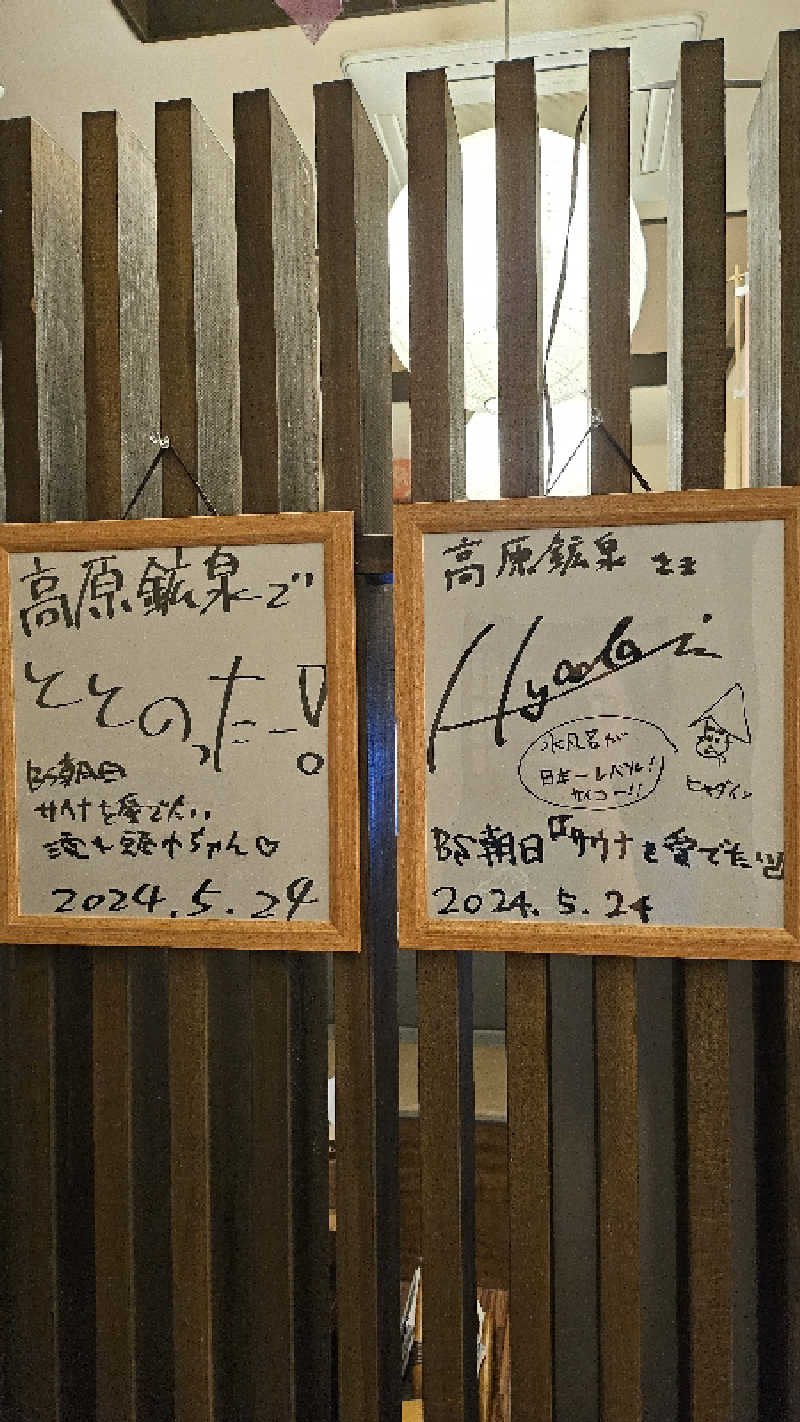 高原鉱泉で
ととのったー!
BS朝日
サウナを愛でたい
清水みさとちゃん♡
2024.5.24
高原鉱泉さま
Hyadain
水風呂が
日本一レベル!!
サイコー!!
ヒャダイン
BS朝日『サウナを愛でたい』
2024.5.24